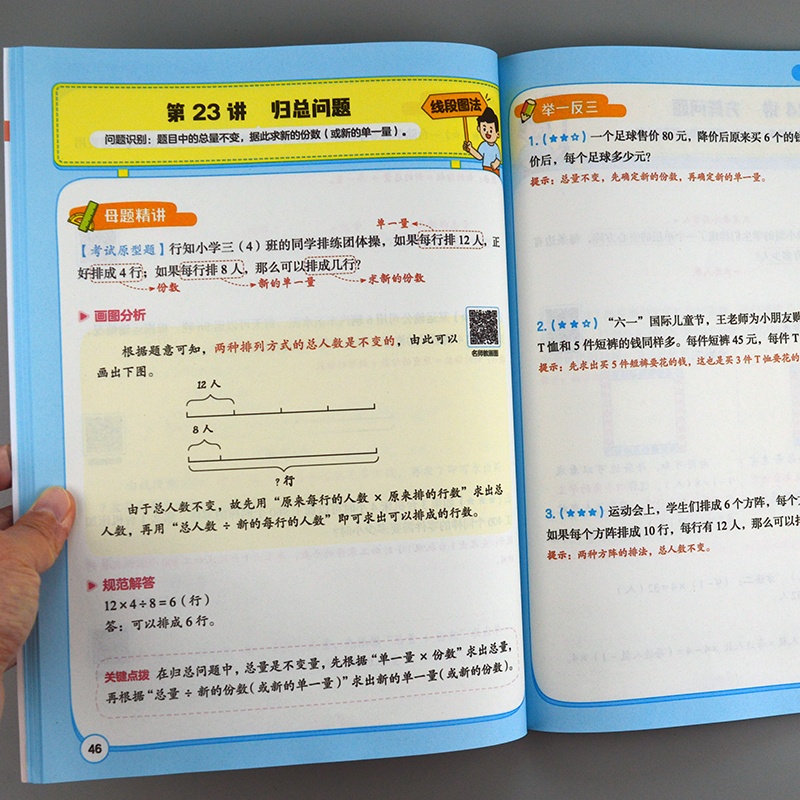 第 23 讲 归总问题
线段图法
问题识别：题目中的总量不变，据此求新的份数（或新的单一量）。
母题精讲
单一量
【考试原型题】行知小学三（4）班的同学排练团体操，如果每行排 12 人，正
好排成 4 行；如果每行排 8 人，那么可以排成几行？
份数 新的单一量 求新的份数
画图分析
名师教画图
根据题意可知，两种排列方式的总人数是不变的，由此可以
画出下图。
12 人
8 人
? 行
由于总人数不变，故先用“原来每行的人数 × 原来排的行数”求出总
人数，再用“总人数 ÷ 新的每行的人数”即可求出可以排成的行数。
规范解答
12×4÷8=6（行）
答：可以排成 6 行。
关键点拨 在归总问题中，总量是不变量，先根据“单一量 × 份数”求出总量，
再根据“总量 ÷ 新的份数（或新的单一量）”求出新的单一量（或新的份数）。
46
举一反三
1.（★★☆）一个足球售价 80 元，降价后原来买 6 个的
价后，每个足球多少元？
提示：总量不变，先确定新的份数，再确定新的单一量。
2.（★★☆）“六一”国际儿童节，王老师为小朋友
T 恤和 5 件短裤的钱同样多。每件短裤 45 元，每件 T
提示：先求出买 5 件短裤要花的钱，这也是买 3 件 T 恤要花的
3.（★★★）运动会上，学生们排成 6 个方阵，每个
如果每个方阵排成 10 行，每行有 12 人，那么可以
提示：两种方阵的排法，总人数不变。